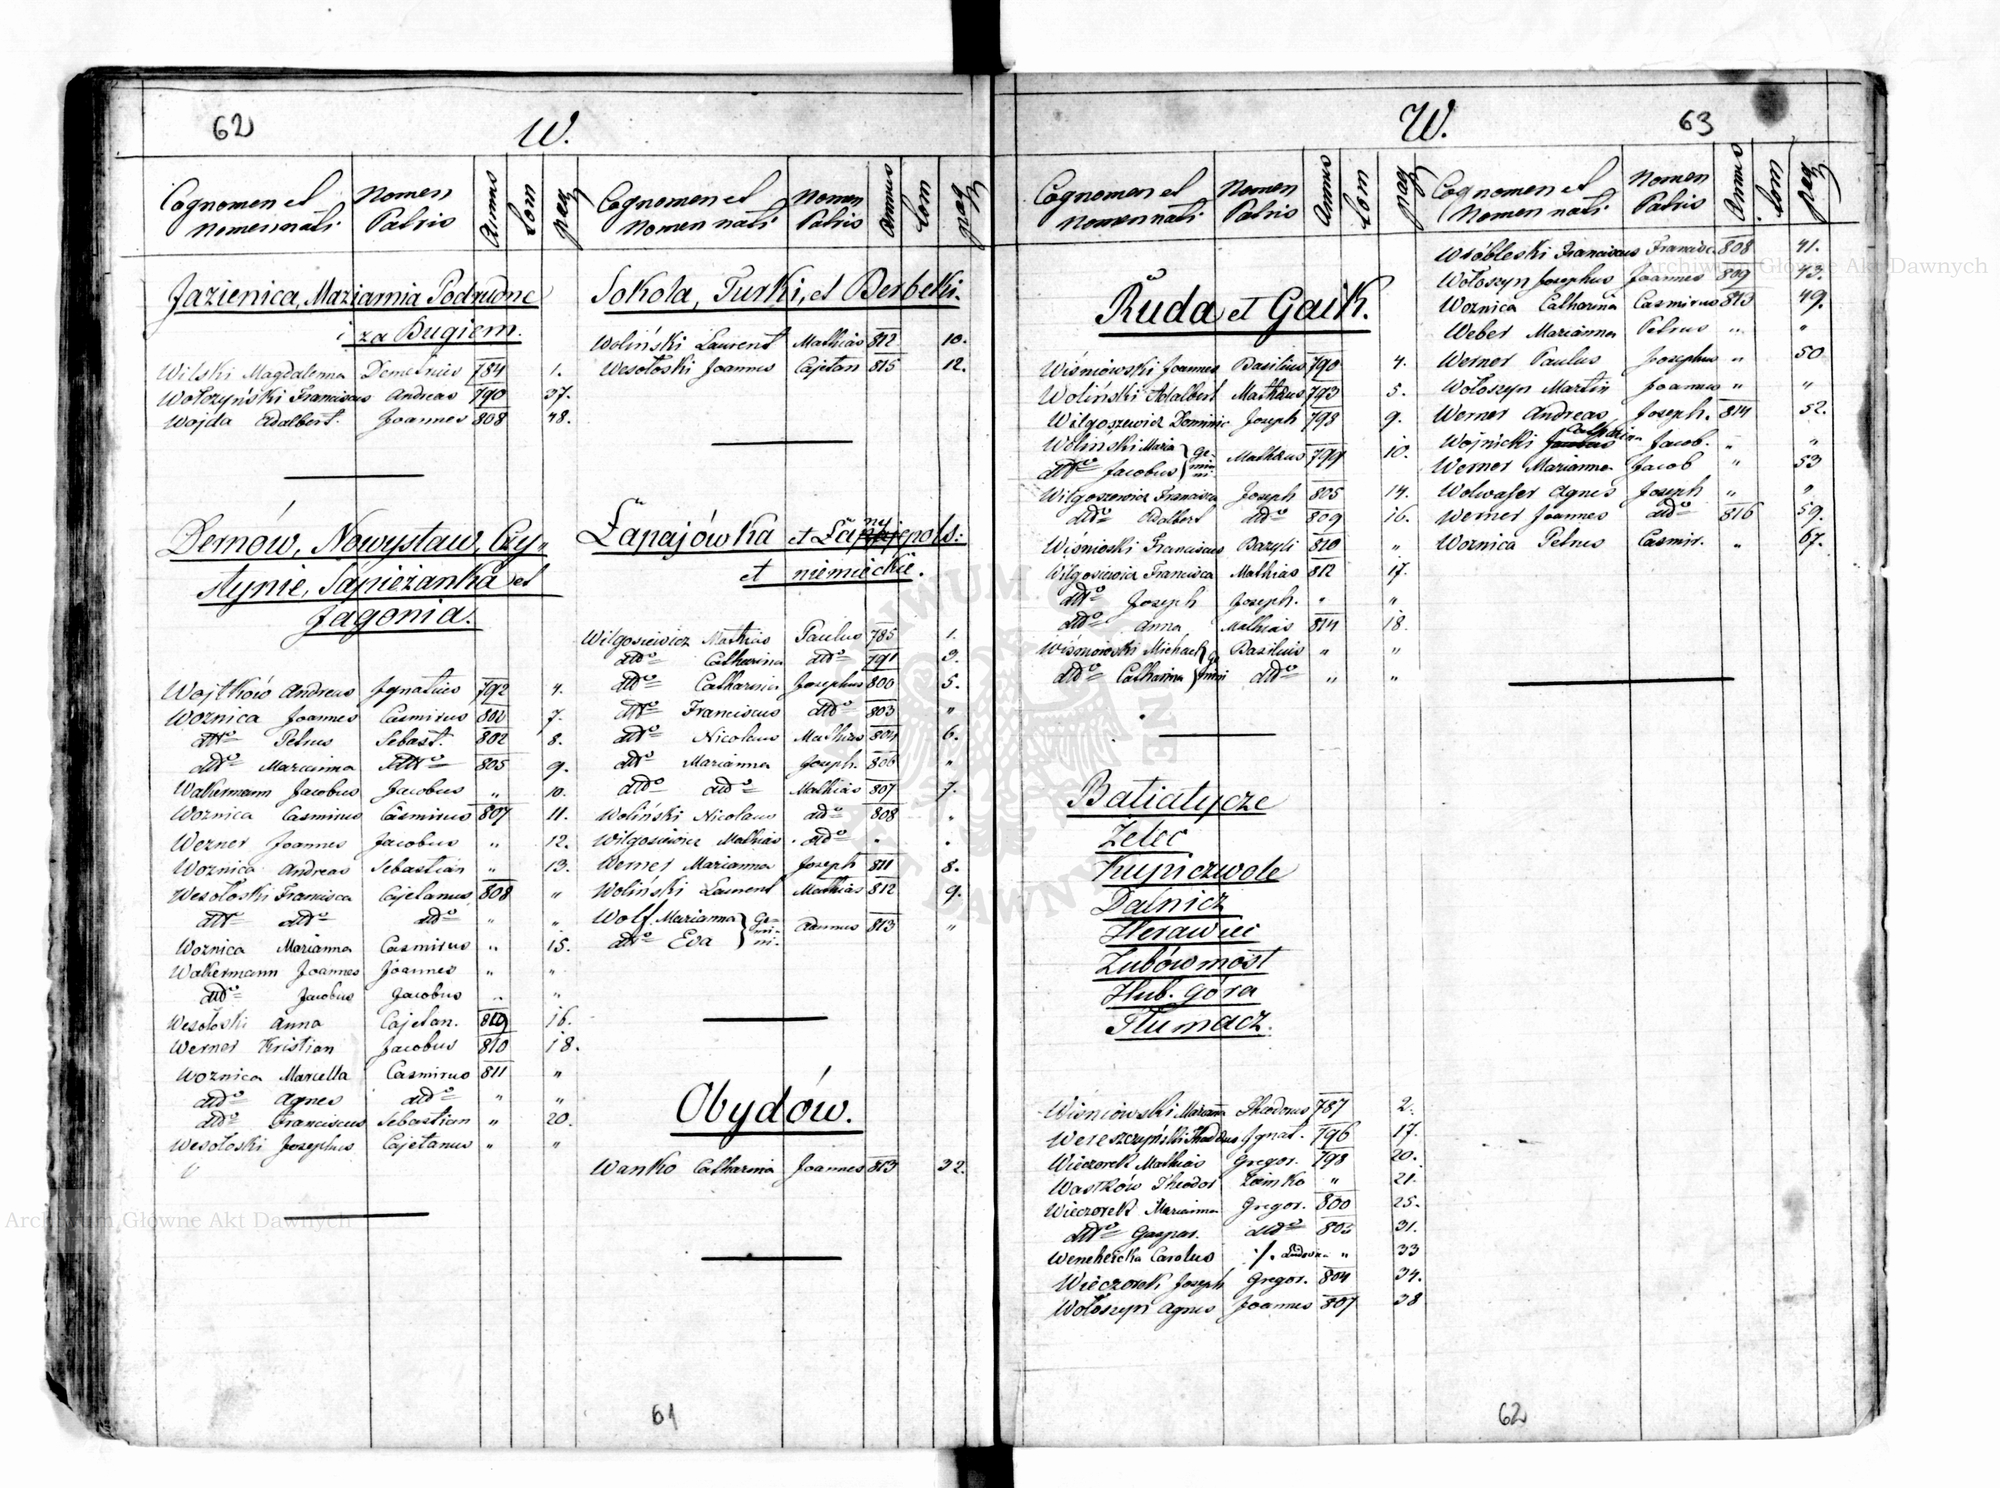 62
W.
Cognomen et Nomen nati | Nomen Patris | Annus | Tom | pag
Jazienica, Maziarnia Podrudne
i za Bugiem.
Wilski Magdalenna Demetrius 784 1.
Wołczyński Franciscus Andreas 790 37.
Wojda Adalbert. Joannes 808 48.
Dernów, Nowystaw, Czy-
stynie, Sapieżanka et
Jagonia.
Wojtków Andreas Ignatius 792 4.
Woznica Joannes Casmirus 802 7.
dtto Petrus Sebast. 802 8.
dtto Marianna dtto 805 9.
Wakermann Jacobus Jacobus " 10.
Woznica Casmirus Casmirus 807 11.
Werner Joannes Jacobus " 12.
Woznica Andreas Sebastian " 13.
Wesołoski Francisca Cajetanus 808 "
dtto dtto dtto " "
Woznica Marianna Casmirus " 15.
Wakermann Joannes Joannes " "
dtto Jacobus Jacobus " "
Wesołoski Anna Cajetan. 809 16.
Werner Kristian Jacobus 810 18.
Woznica Marcella Casmirus 811 "
dtto Agnes dtto " "
dtto Franciscus Sebastian " 20.
Wesołoski Josephus Cajetanus " "
Cognomen et Nomen nati | Nomen Patris | Annus | Tom | pag
Sokola, Turki, et Berbeki.
Woliński Laurent Mathias 812 10.
Wesołoski Joannes Cajetan 815 12.
Łapajówka et Łany pols:
et niemieckie.
Wilgosiewicz Mathias Paulus 785 1.
dtto Catharina dtto 791 3.
dtto Catharina Josephus 800 5.
dtto Franciscus dtto 803 "
dtto Nicolaus Mathias 804 6.
dtto Marianna Joseph. 806 "
dtto dtto Mathias 807 7.
Woliński Nicolaus dtto 808 "
Wilgosiewicz Mathias dtto " "
Werner Marianna Joseph 811 8.
Woliński Laurent Mathias 812 9.
Wolf Marianna } Ge- 813 "
dtto Eva } mi- ni.
Obydów.
Wanko Catharina Joannes 813 32.
61
W.
63
Cognomen et Nomen nati | Nomen Patris | Annus | Tom | pag
Ruda et Gaik.
Wiśniowski Joannes Basilius 790 4.
Woliński Adalbert Mathäus 793 5.
Wilgoszewicz Dominic Joseph 798 9.
Wolinski Maria } Ge- Mathäus 799 10.
dtto Jacobus } mi- ni.
Wilgoszewicz Francisca Joseph 805 14.
dtto Adalbert dtto 809 16.
Wiśnioski Franciscus Bazyli 810 "
Wilgosiewicz Francisca Mathias 812 17.
dtto Joseph Joseph. " "
dtto Anna Mathias 814 18.
Wiśniowski Michael } Ge- Basilius " "
dtto Catharina } mini dtto " "
Batiatycze
Zelec
Kupiczwole
Dalnicz
Herawiec
Zubówmost
Hub. Góra
Tłumacz.
Wisniowski Mariann Theodorus 787 2.
Wereszczyński Thaddäus Ignat. 796 17.
Wieczorek Mathias Gregor. 798 20.
Wastków Theodor " 21.
Wieczorek Marianna Gregor. 800 25.
dtto Gaspar. dtto 803 31.
Carolus " 33
Wieczorek Joseph Gregor. 804 34.
Wołoszyn Agnes Joannes 807 38
Cognomen et Nomen nati | Nomen Patris | Annus | Tom | pag
Wróbleski Franciscus Francisc. 808 41.
Wołoszyn Josephus Joannes 809 43.
Woznica Catharina Casmirus 813 49.
Weber Marianna Petrus " "
Werner Paulus Josephus " 50
Wołoszyn Martin Joannes " "
Werner Andreas Joseph. 814 52.
Wojnicki Catharina Jacob. " "
Werner Marianna Jacob " 53
Agnes Joseph " "
Werner Joannes dtto 816 59.
Woznica Petrus Casmir. " 67.
62
Archiwum Główne Akt Dawnych
Archiwum Główne Akt Dawnych